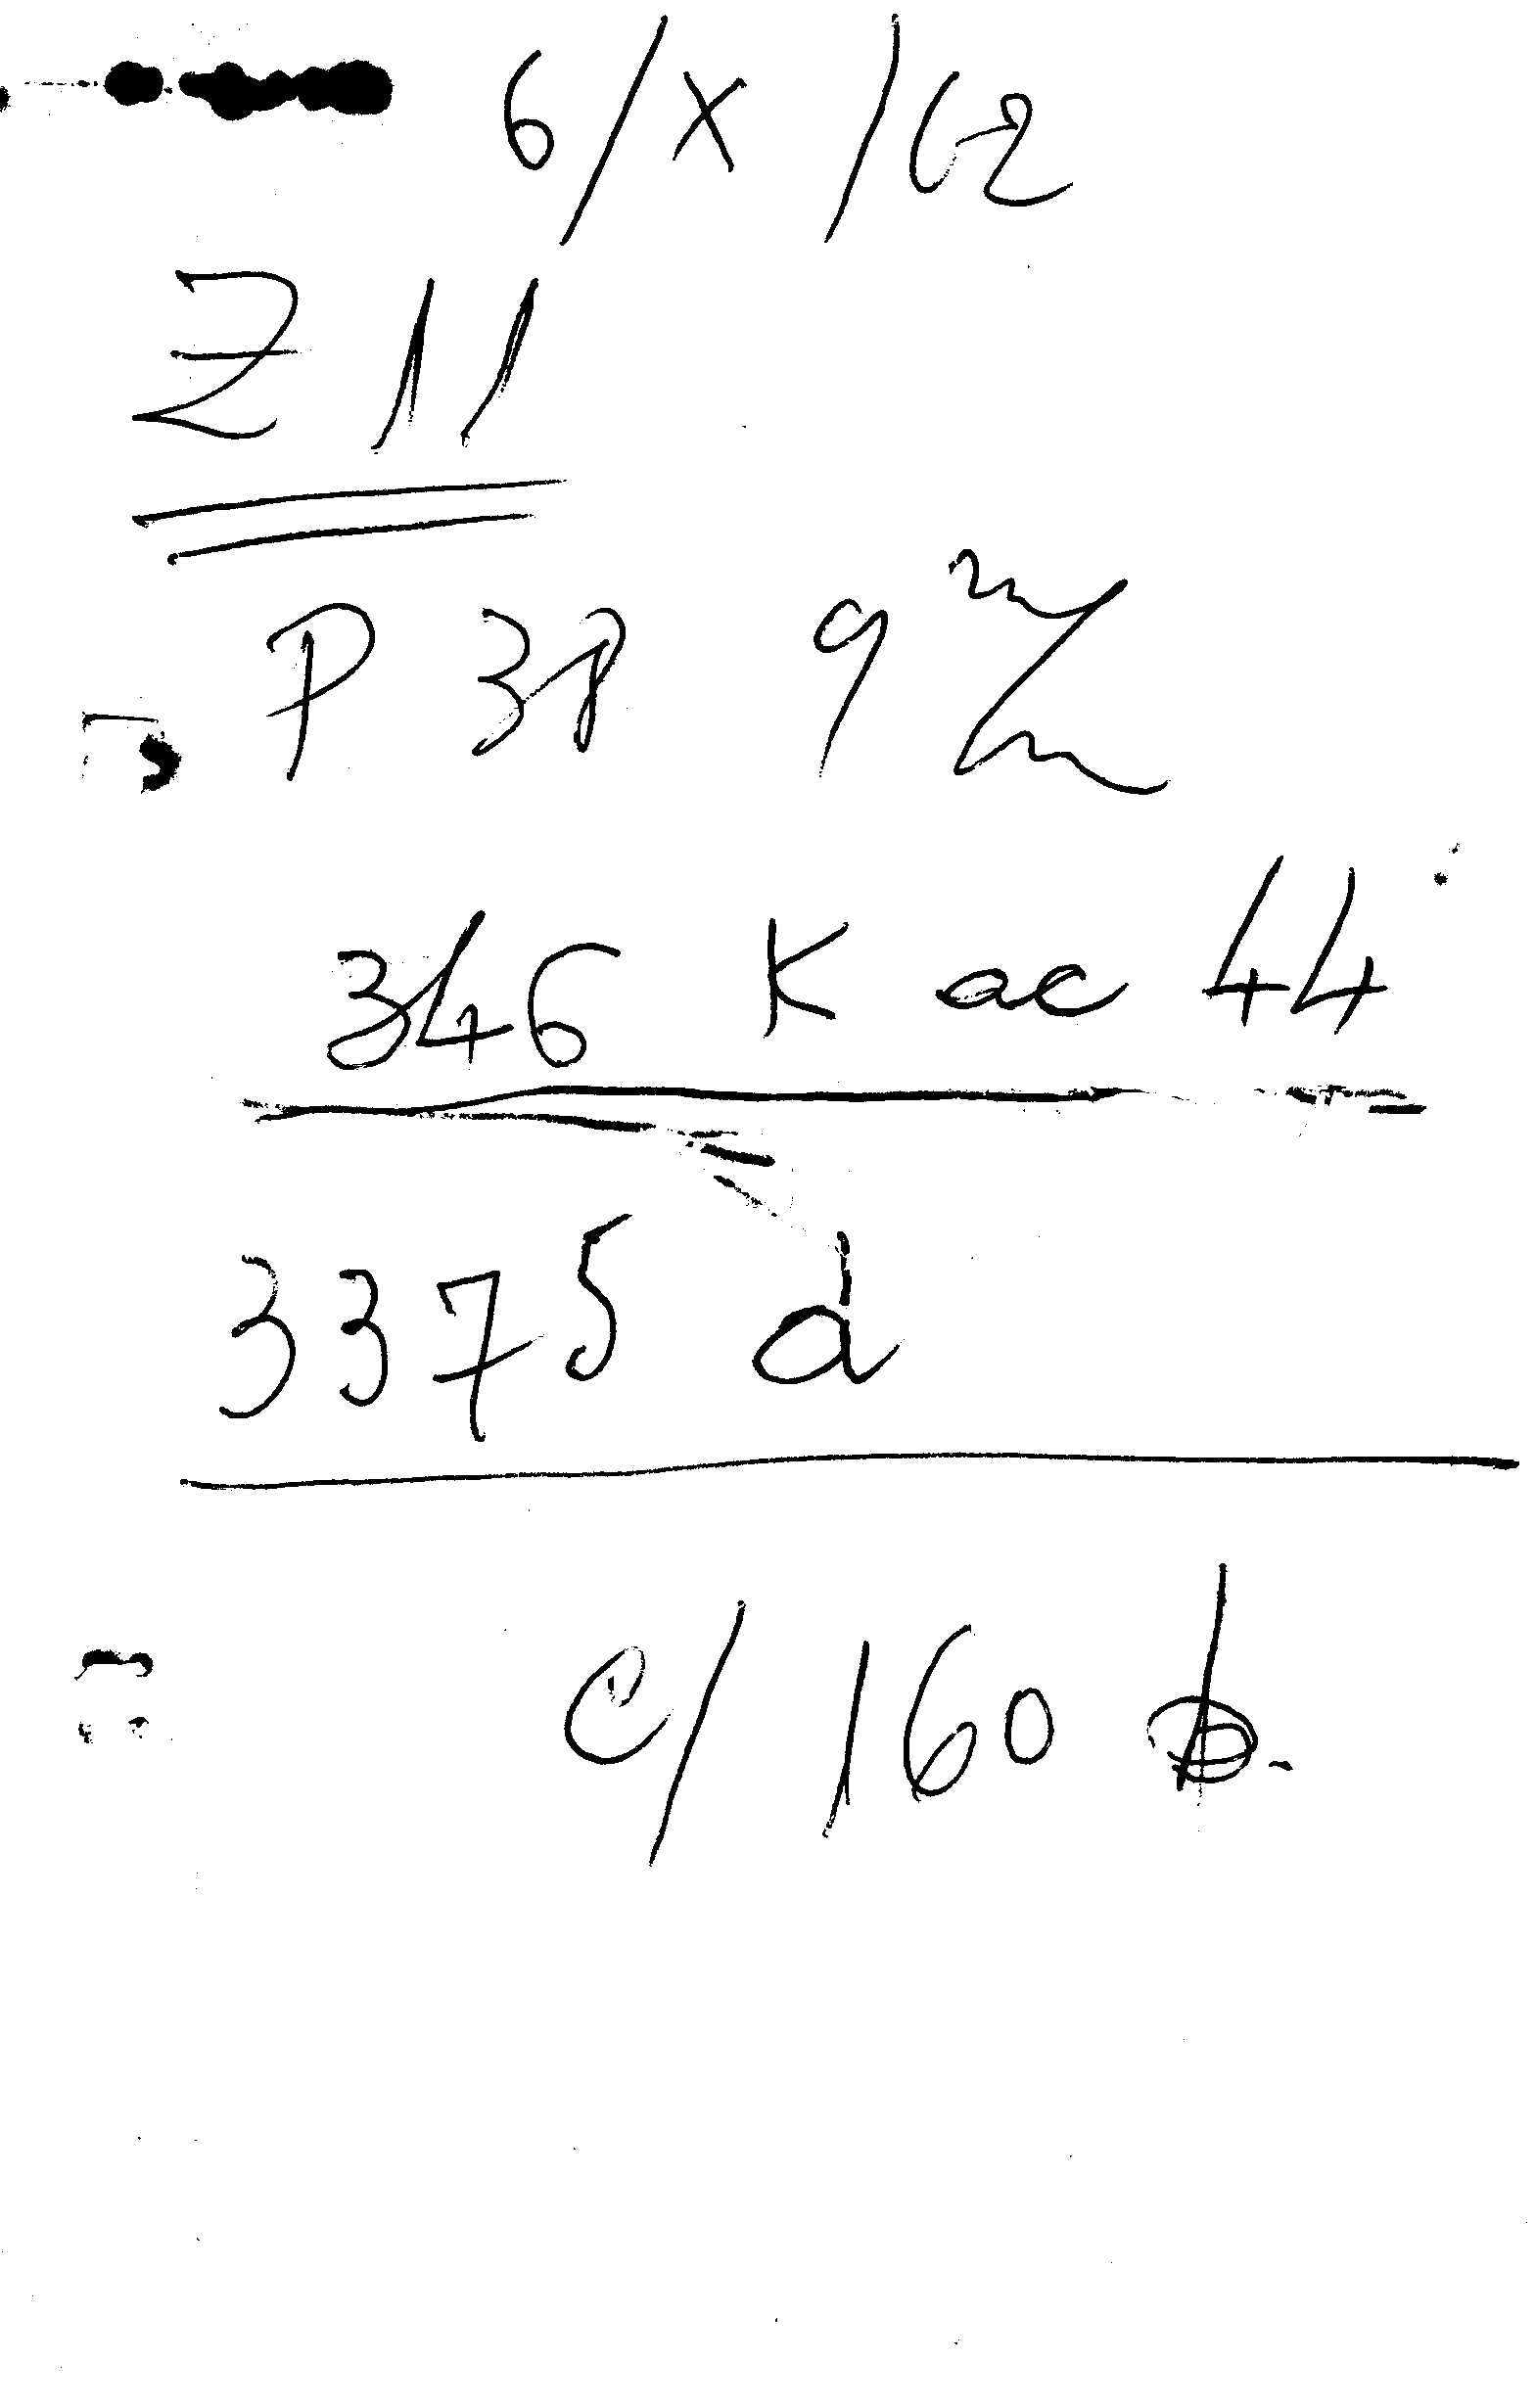 6/X/62
Z 11
P 38 9
346 K ac 44
3375 d
c/160 b.